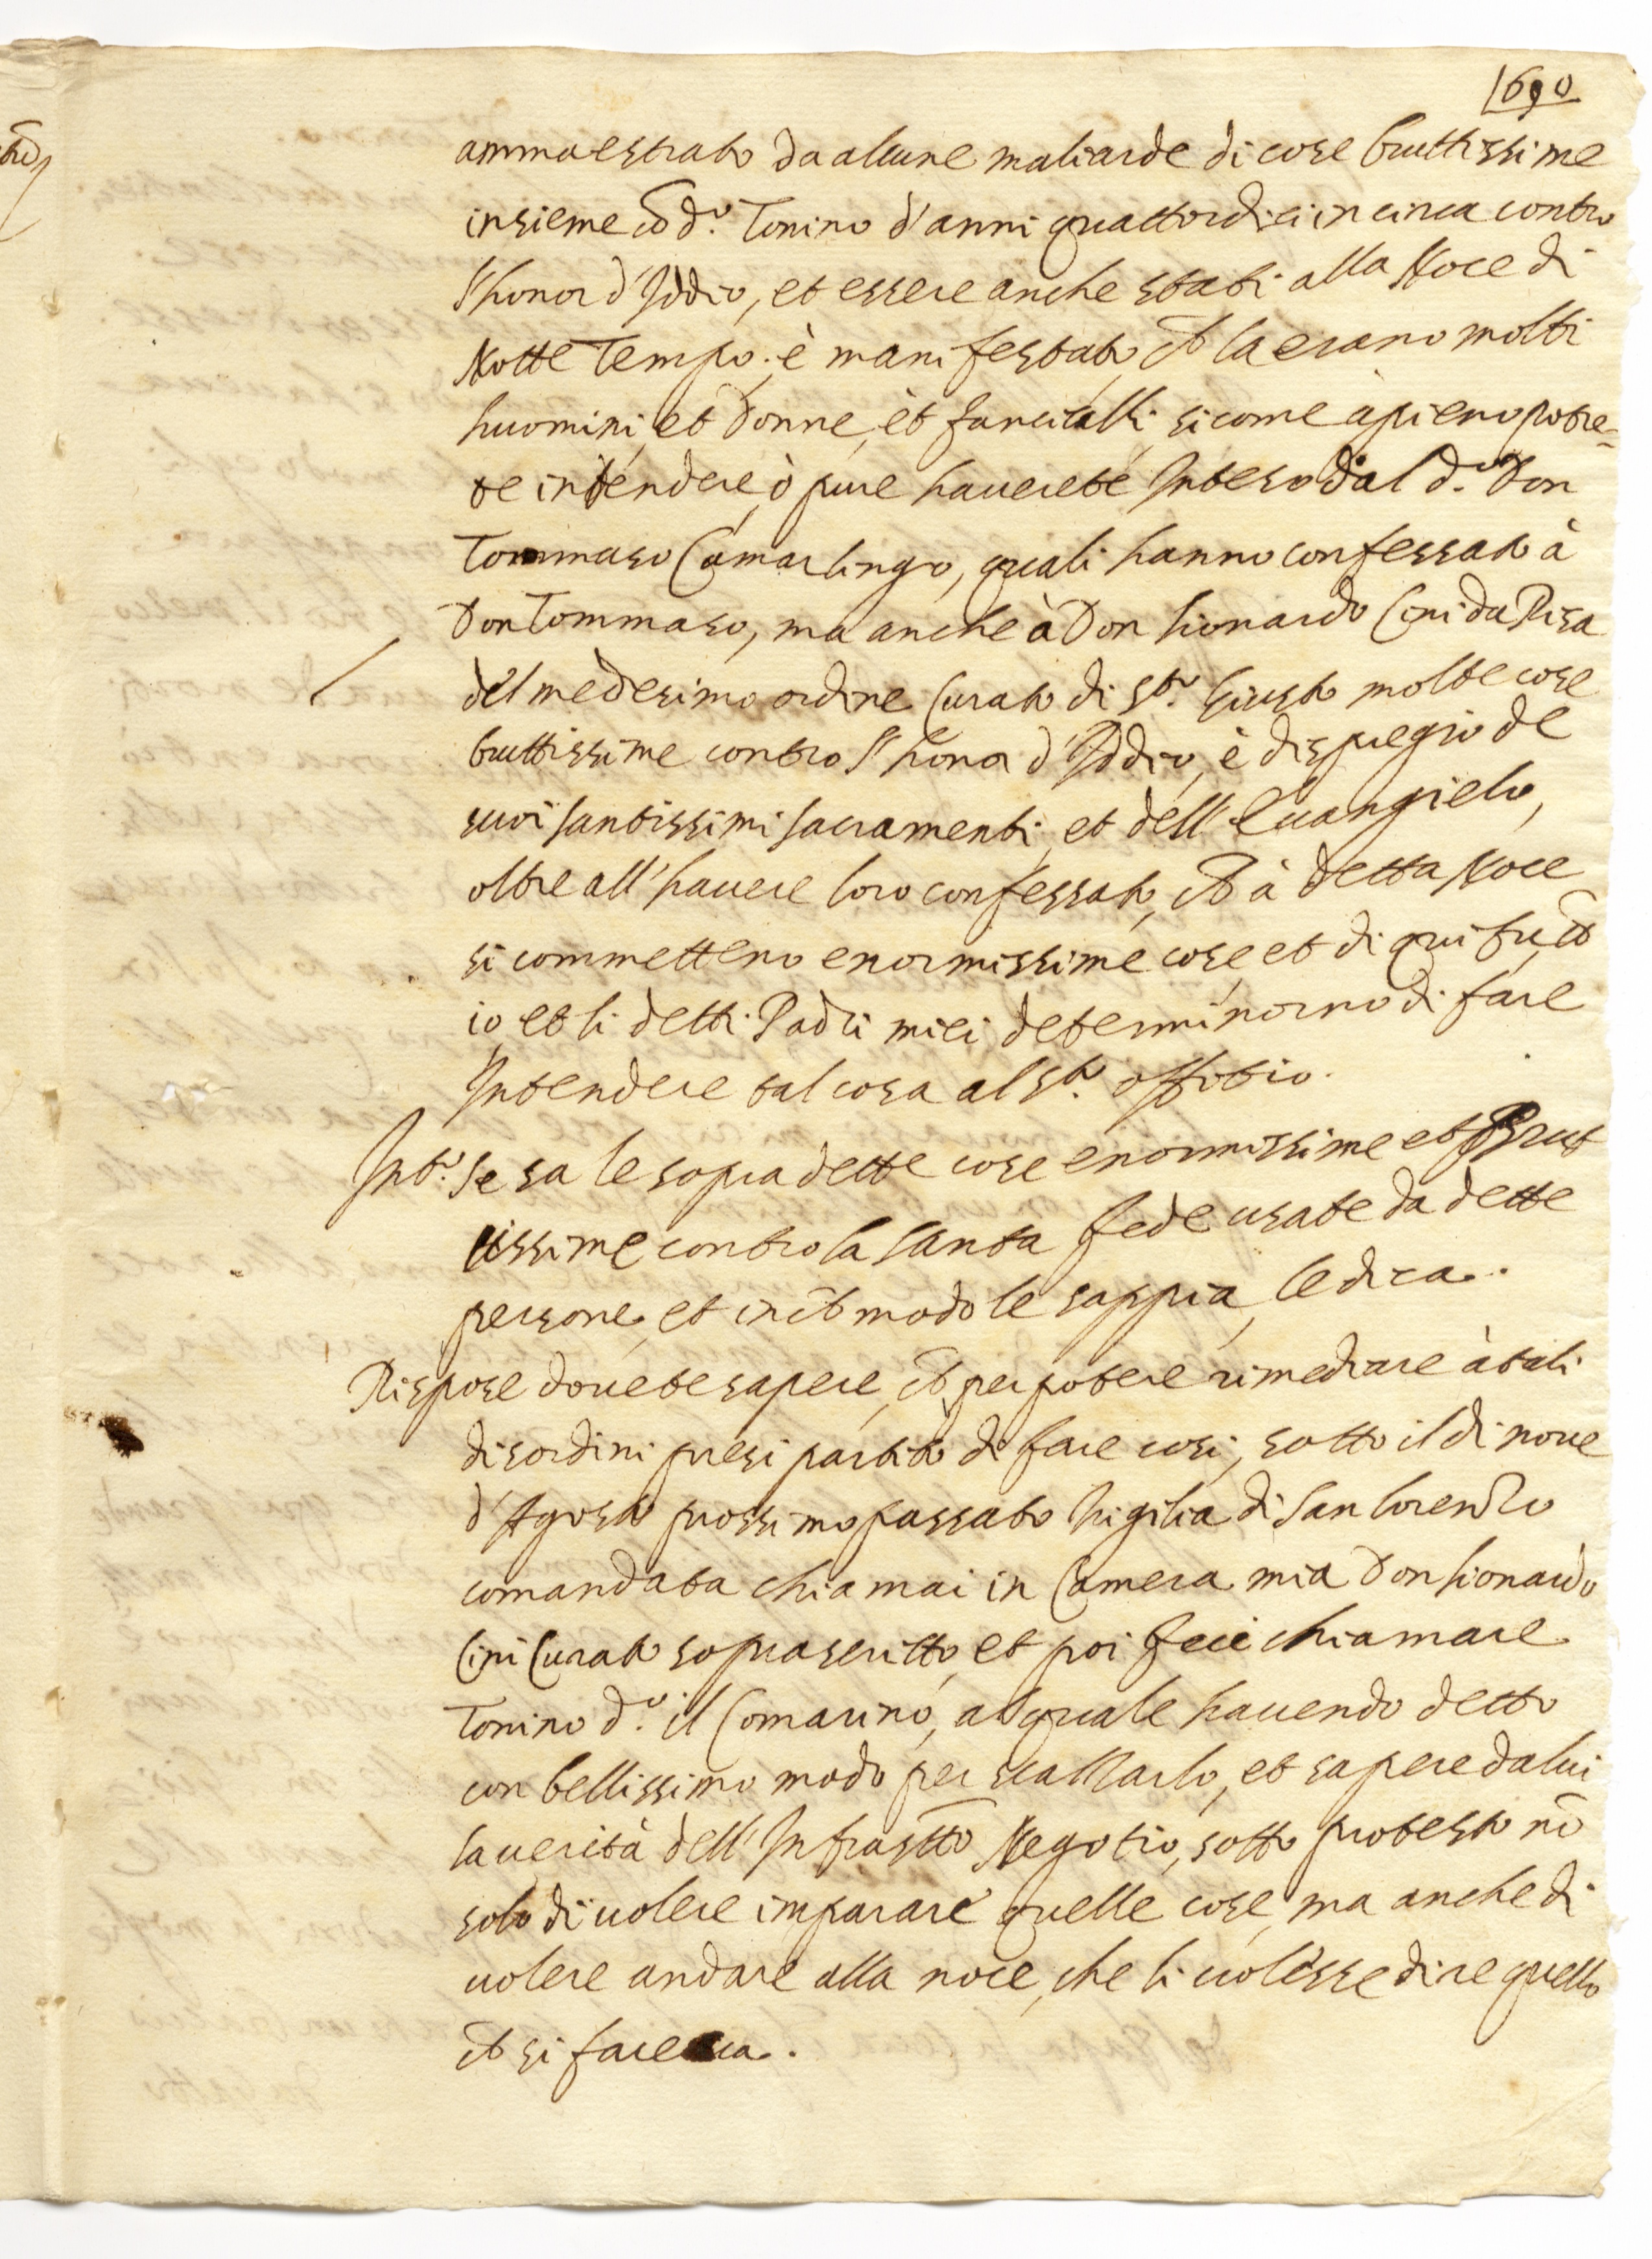 1690
ammaestrato da alcune maliarde di cose bruttissime
insieme cõ d.º Tonino d'anni quattordici in circa contro
l'honor d'Iddio, et essere anche stati alla Noce di
Notte Tempo, è manifestato ch̃ la erano molti
huomini, et donne, et fanciulli, si come à pieno potre=
te intendere, ò pure haverete Inteso dal d.º Don
Tommaso Camarlingo, quali hanno confessato à
Don Tommaso, ma anche à Don Lionardo Cini da Pisa
del medesimo ordine Curato di s.to Giusto molte cose
bruttissime contro l'honor d'Iddio, è dispregio de
suoi santissimi sacramenti, et dell'Euangielo,
oltre all'hauere loro confessato, ch̃ à detta Noce
si commetteno enormissime cose et di qui fu, ch̃
io, et li detti Padri miei determinorno di fare
Intendere tal cosa al s.to offitio.
Int.º se sa le sopra dette cose enormissime et Brut
tissime contro la santa fede usate da dette
persone, et in ch̃ modo le sappia, le dica.
Rispose douete sapere, ch̃ per potere rimediare à tali
disordini presi partito di fare cosi, sotto il di noue
d'Agosto prossimo passato Vigilia di San Lorenzo
comandata chiamai in Camera mia Don Lionardo
Cini Curato soprascritto, et poi feci chiamare
Tonino d.º il Comarino, al quale hauendo detto
con bellissimo modo per scalzarlo, et sapere da lui
la uerità dell'Infrastto Negotio, sotto protesto nõ
solo di uolere imparare quelle cose, ma anche di
uolere andare alla noce, che li uolesse dire quello
ch̃ si faceua.